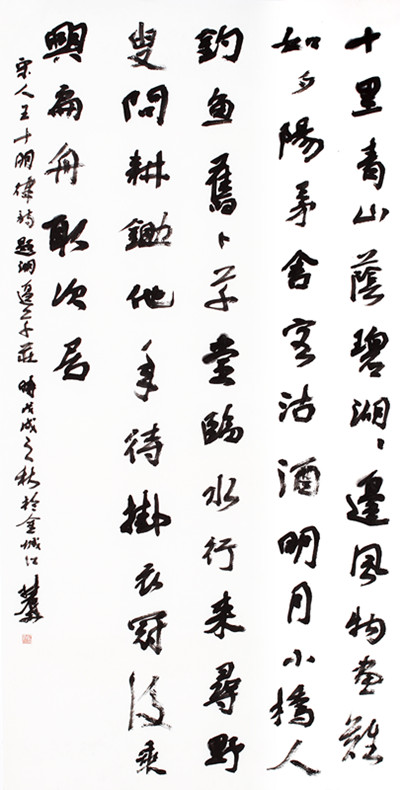 十里青山蔭碧湖〻邊風物畫難
如夕陽茅舍客沽酒明月小橋人
釣魚舊卜草堂臨水行来尋野
叟問耕鋤他年待掛衣冠後乘
興扁舟取次居
宋人王十明律詩題湖邊莊 時戊戌之秋於金城江